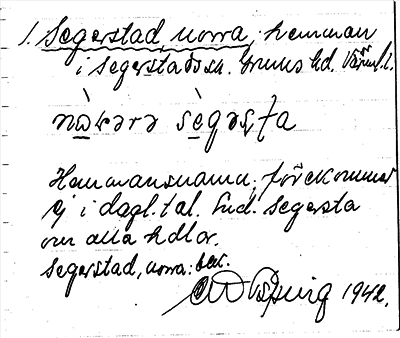 1. Segerstad, norra, hemman
i Segerstads sn. Grums hd. Värml. l.
nɑ̀rərə sègəsta
Hemmansnamn, förekommer
ej i dagl. tal. End. Segersta
om alla hdlar.
Segerstad, norra: bet.
1942.